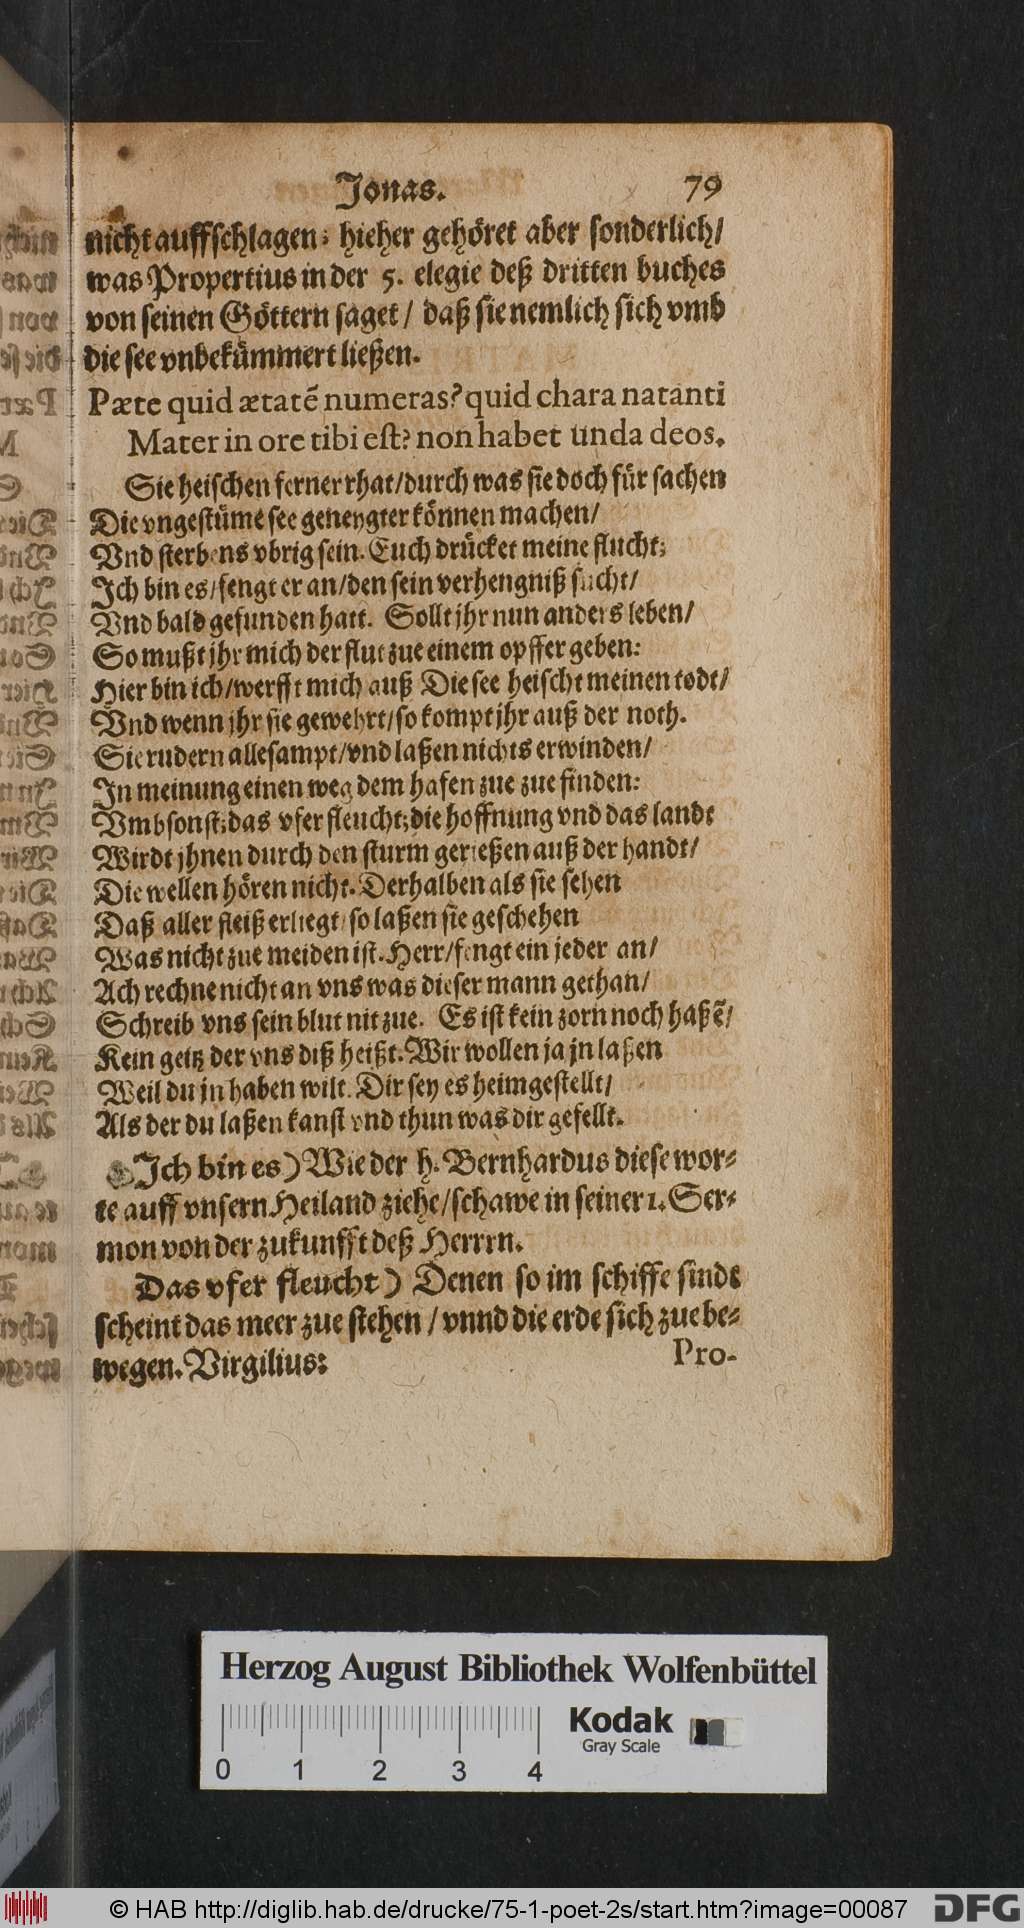 Jonas. 79
nicht auffschlagen; hieher gehöret aber sonderlich/
was Propertius in der 5. elegie deß dritten buches
von seinen Göttern saget / daß sie nemlich sich vmb
die see vnbekümmert ließen.
Pæte quid ætatẽ numeras? quid chara natanti
Mater in ore tibi est? non habet unda deos.
Sie heischen ferner rhat/durch was sie doch für sachen
Die vngestüme see geneygter können machen/
Vnd sterbens vbrig sein. Euch drücket meine flucht;
Ich bin es/fengt er an/den sein verhengniß sucht/
Vnd bald gefunden hatt. Sollt jhr nun anders leben/
So mußt jhr mich der flut zue einem opffer geben:
Hier bin ich/werfft mich auß Die see heischt meinen todt/
Vnd wenn jhr sie gewehrt/so kompt jhr auß der noth.
Sie rudern allesampt/vnd laßen nichts erwinden/
In meinung einen weg dem hafen zue zue finden:
Vmbsonst;das vfer fleucht;die hoffnung vnd das landt
Wirdt jhnen durch den sturm gerießen auß der handt/
Die wellen hören nicht. Derhalben als sie sehen
Daß aller fleiß erliegt/so laßen sie geschehen
Was nicht zue meiden ist. Herr/fengt ein jeder an/
Ach rechne nicht an vns was dieser mann gethan/
Schreib vns sein blut nit zue. Es ist kein zorn noch haßẽ/
Kein geitz der vns diß heißt. Wir wollen ja jn laßen
Weil du jn haben wilt. Dir sey es heimgestellt/
Als der du laßen kanst vnd thun was dir gefellt.
Ich bin es) Wie der h. Bernhardus diese wor-
te auff vnsern Heiland ziehe/schawe in seiner 1. Ser-
mon von der zukunfft deß Herrrn.
Das vfer fleucht) Denen so im schiffe sindt
scheint das meer zue stehen / vnnd die erde sich zue be-
wegen. Virgilius:
Pro-
Herzog August Bibliothek Wolfenbüttel
Kodak
Gray Scale
0 1 2 3 4
© HAB http://diglib.hab.de/drucke/75-1-poet-2s/start.htm?image=00087 DFG